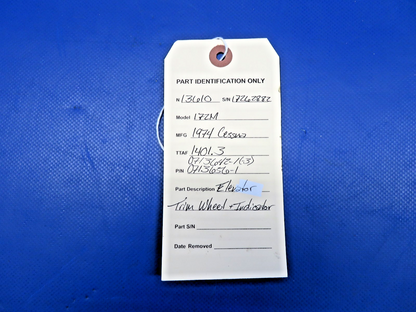 PART IDENTIFICATION ONLY
N 13610 S/N 17262882
Model 172M
MFG 1974 Cessna
TTAF 1401.3
P/N 0713656-1
Part Description Elevator
Trim Wheel + Indicator
Part S/N
Date Removed